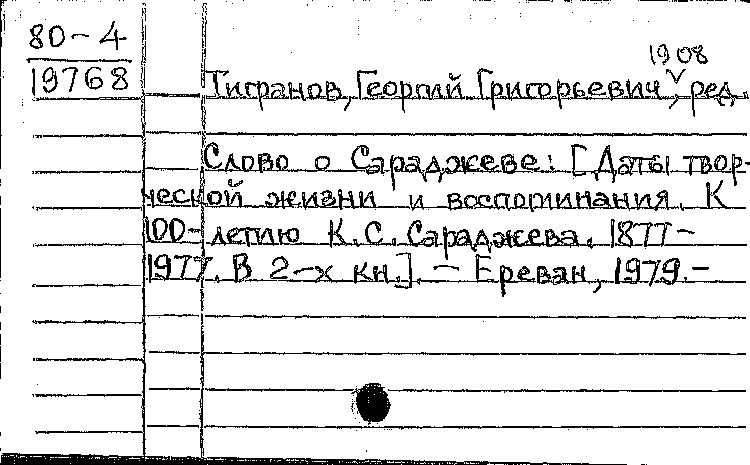 80-4
19768
1908
Тигранов, Георгий Григорьевич, ред.
Слово о Сараджеве: [Даты твор-
ческой жизни и воспоминания. К
100-летию К.С. Сараджева. 1877-
1977. В 2-х кн.]. - Ереван, 1979.-